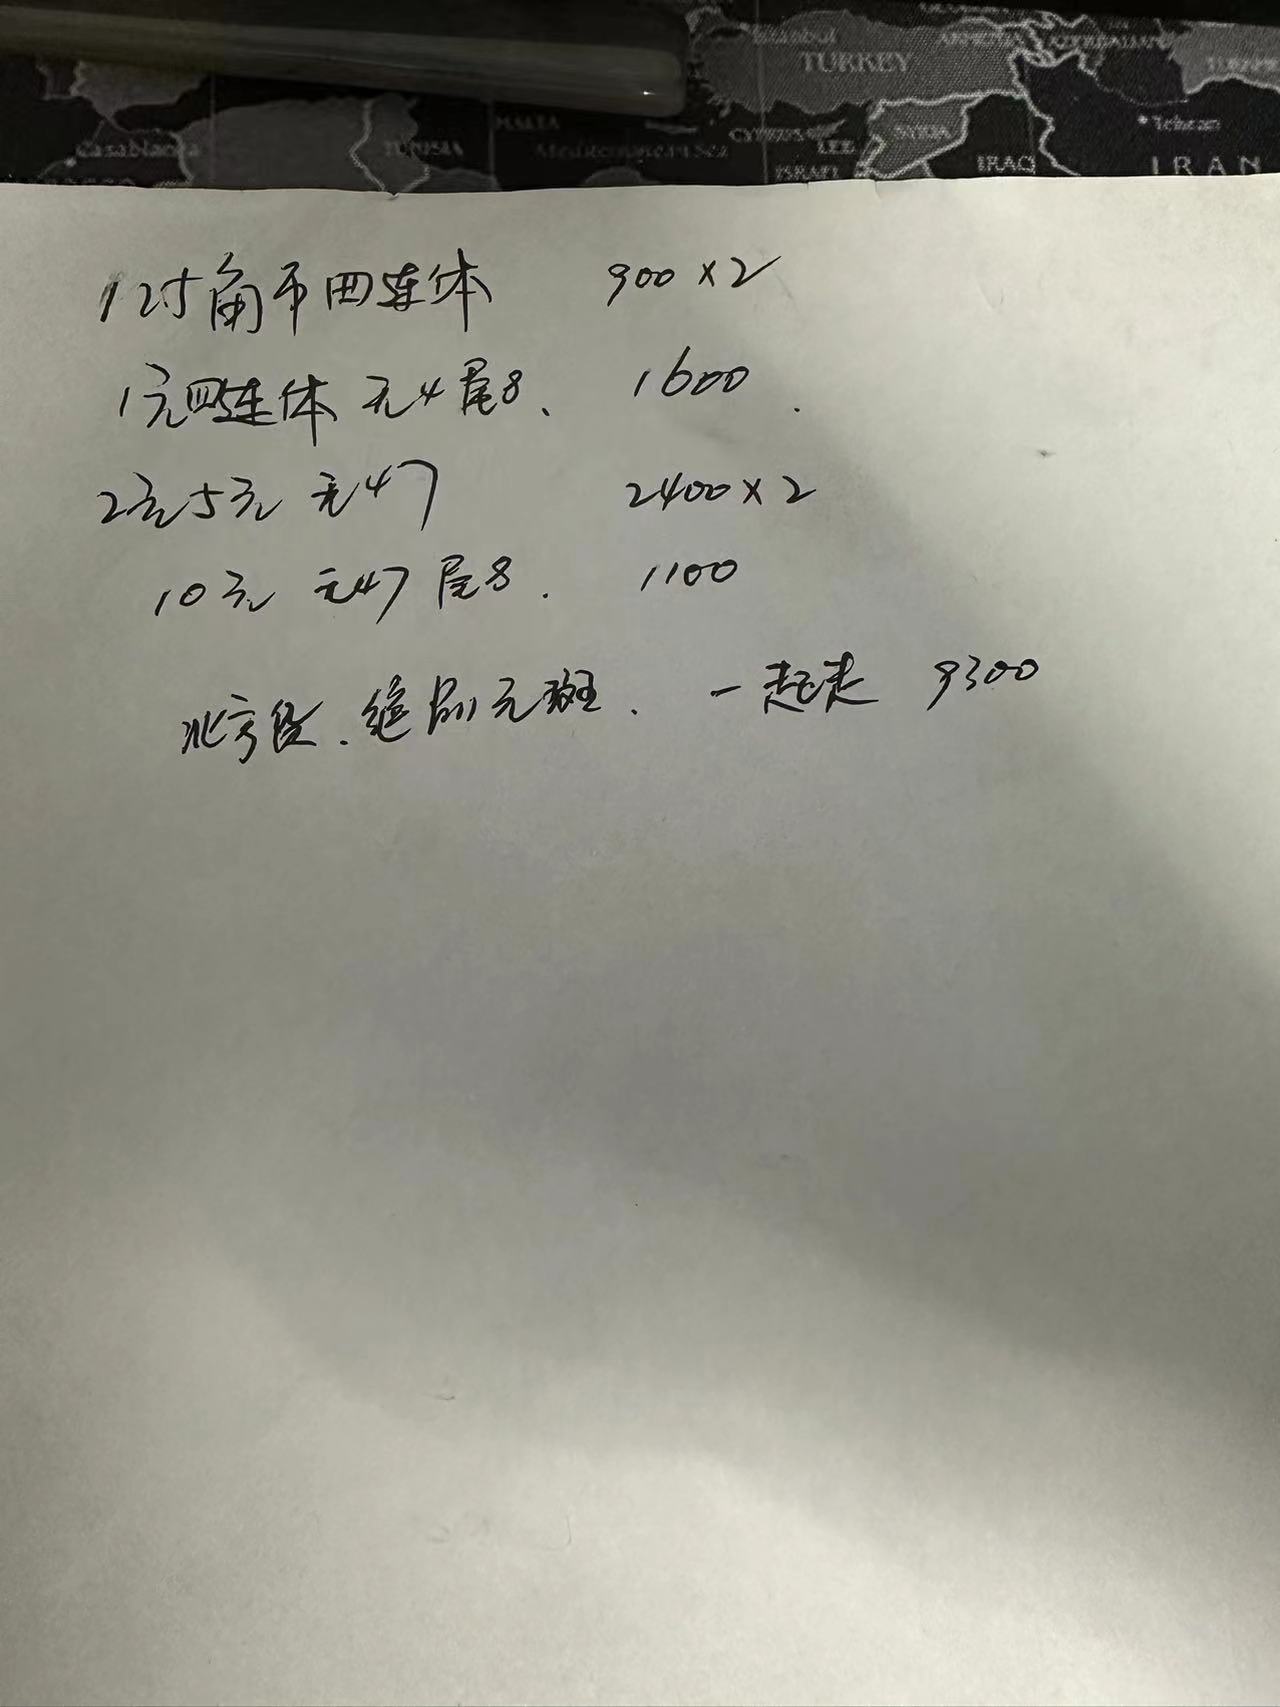 Istanbul
TURKEY
ARMENIA
AZERBAIJAN
Casablanca
TUNISIA
MALTA
Mediterranean Sea
CYPRUS
LEE
SYRIA
ISRAEL
IRAQ
Tehran
IRAN
1对角币四连体 900×2
1元四连体 无4尾8、 1600.
2元5元 无47 2400×2
10元 无47 尾8. 1100
北方货.绝品无斑. 一起走 9300